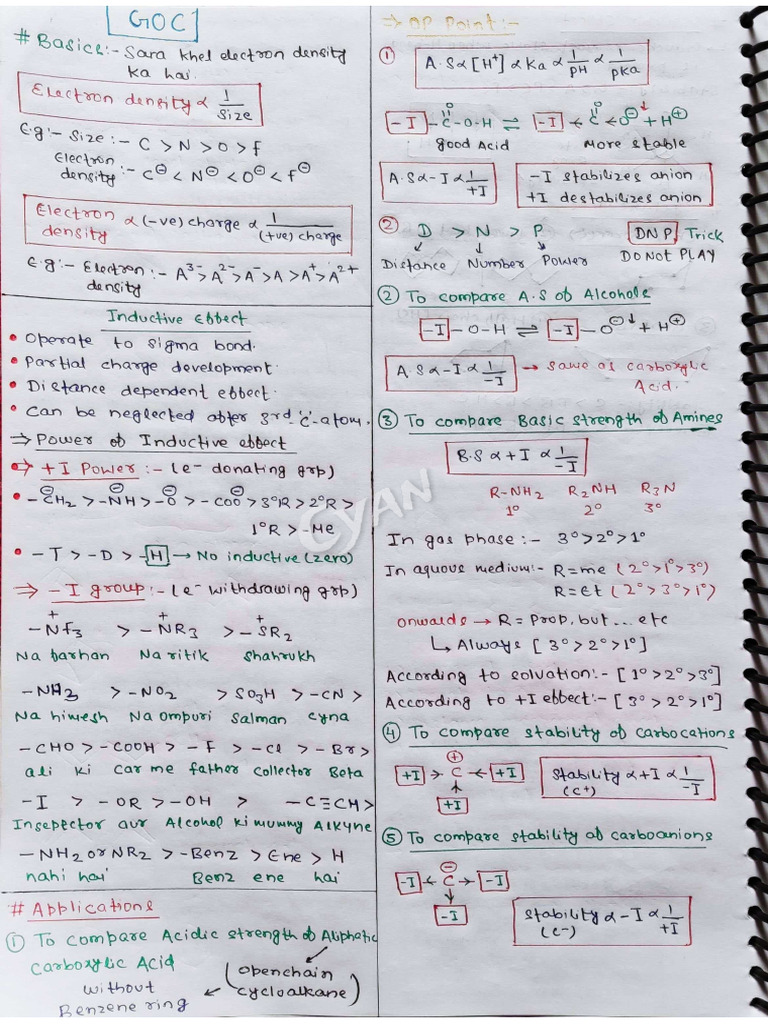 GOC
# Basics:- Sara khel electron density
ka hai.
Electron density ∝ 1/Size
E.g:- Size:- C > N > O > f
Electron density:- C⊖ < N⊖ < O⊖ < f⊖
Electron density ∝ (-ve) charge ∝ 1/(+ve) charge
E.g:- Electron density:- A³⁻ > A²⁻ > A⁻ > A > A⁺ > A²⁺
Inductive effect
• Operate to sigma bond.
• Partial charge development.
• Distance dependent effect.
• Can be neglected after 3rd 'C' atom.
⇒ Power of Inductive effect
⇒ +I Power:- (e⁻ donating grp)
• -C̈H₂⊖ > -NH⊖ > -O⊖ > -COO⊖ > 3°R > 2°R >
1°R > -Me
• -T > -D > -H → No inductive (zero)
⇒ -I group:- (e⁻ withdrawing grp)
-N⁺f₃ > -N⁺R₃ > -S⁺R₂
Na barhan Na ritik Shahrukh
-NH₃ > -NO₂ > SO₃H > -CN >
Na himesh Na ompuri Salman Cyna
-CHO > -COOH > -F > -Cl > -Br >
ali ki car me father collector Beta
-I > -OR > -OH > -C≡CH >
Insepector aur Alcohol ki mummy Alkyne
-NH₂ or NR₂ > -Benz > Ene > H
nahi hai Benz ene hai
# Applications
① To compare Acidic strength of Aliphatic
Carboxylic Acid
without
Benzene ring
(openchain
cycloalkane)
⇒ OP Point:-
① A.S ∝ [H⁺] ∝ Ka ∝ 1/pH ∝ 1/pKa
-I -C(=O)-O-H ⇌ -I ← C(=O) ← O⊖↓ + H⊕
good Acid More stable
A.S ∝ -I ∝ 1/+I
-I stabilizes anion
+I destabilizes anion
② D > N > P DNP Trick
Distance Number Power DO NOT PLAY
② To compare A.S of Alcohols
-I -O-H ⇌ -I -O⊖↓ + H⊕
A.S ∝ -I ∝ 1/-I → Same as carboxylic
Acid.
③ To compare Basic strength of Amines
B.S ∝ +I ∝ 1/-I
R-NH₂ R₂NH R₃N
1° 2° 3°
In gas phase:- 3° > 2° > 1°
In aquous medium:- R = me (2° > 1° > 3°)
R = Et (2° > 3° > 1°)
onwalds → R = Prop, but... etc
↳ Always [3° > 2° > 1°]
According to solvation:- [1° > 2° > 3°]
According to +I effect:- [3° > 2° > 1°]
④ To compare stability of carbocations
+I → C⊕ ← +I
+I
Stability (C⁺) ∝ +I ∝ 1/-I
⑤ To compare stability of carboanions
-I ← C⊖ → -I
-I
Stability (C⁻) ∝ -I ∝ 1/+I
CYAN